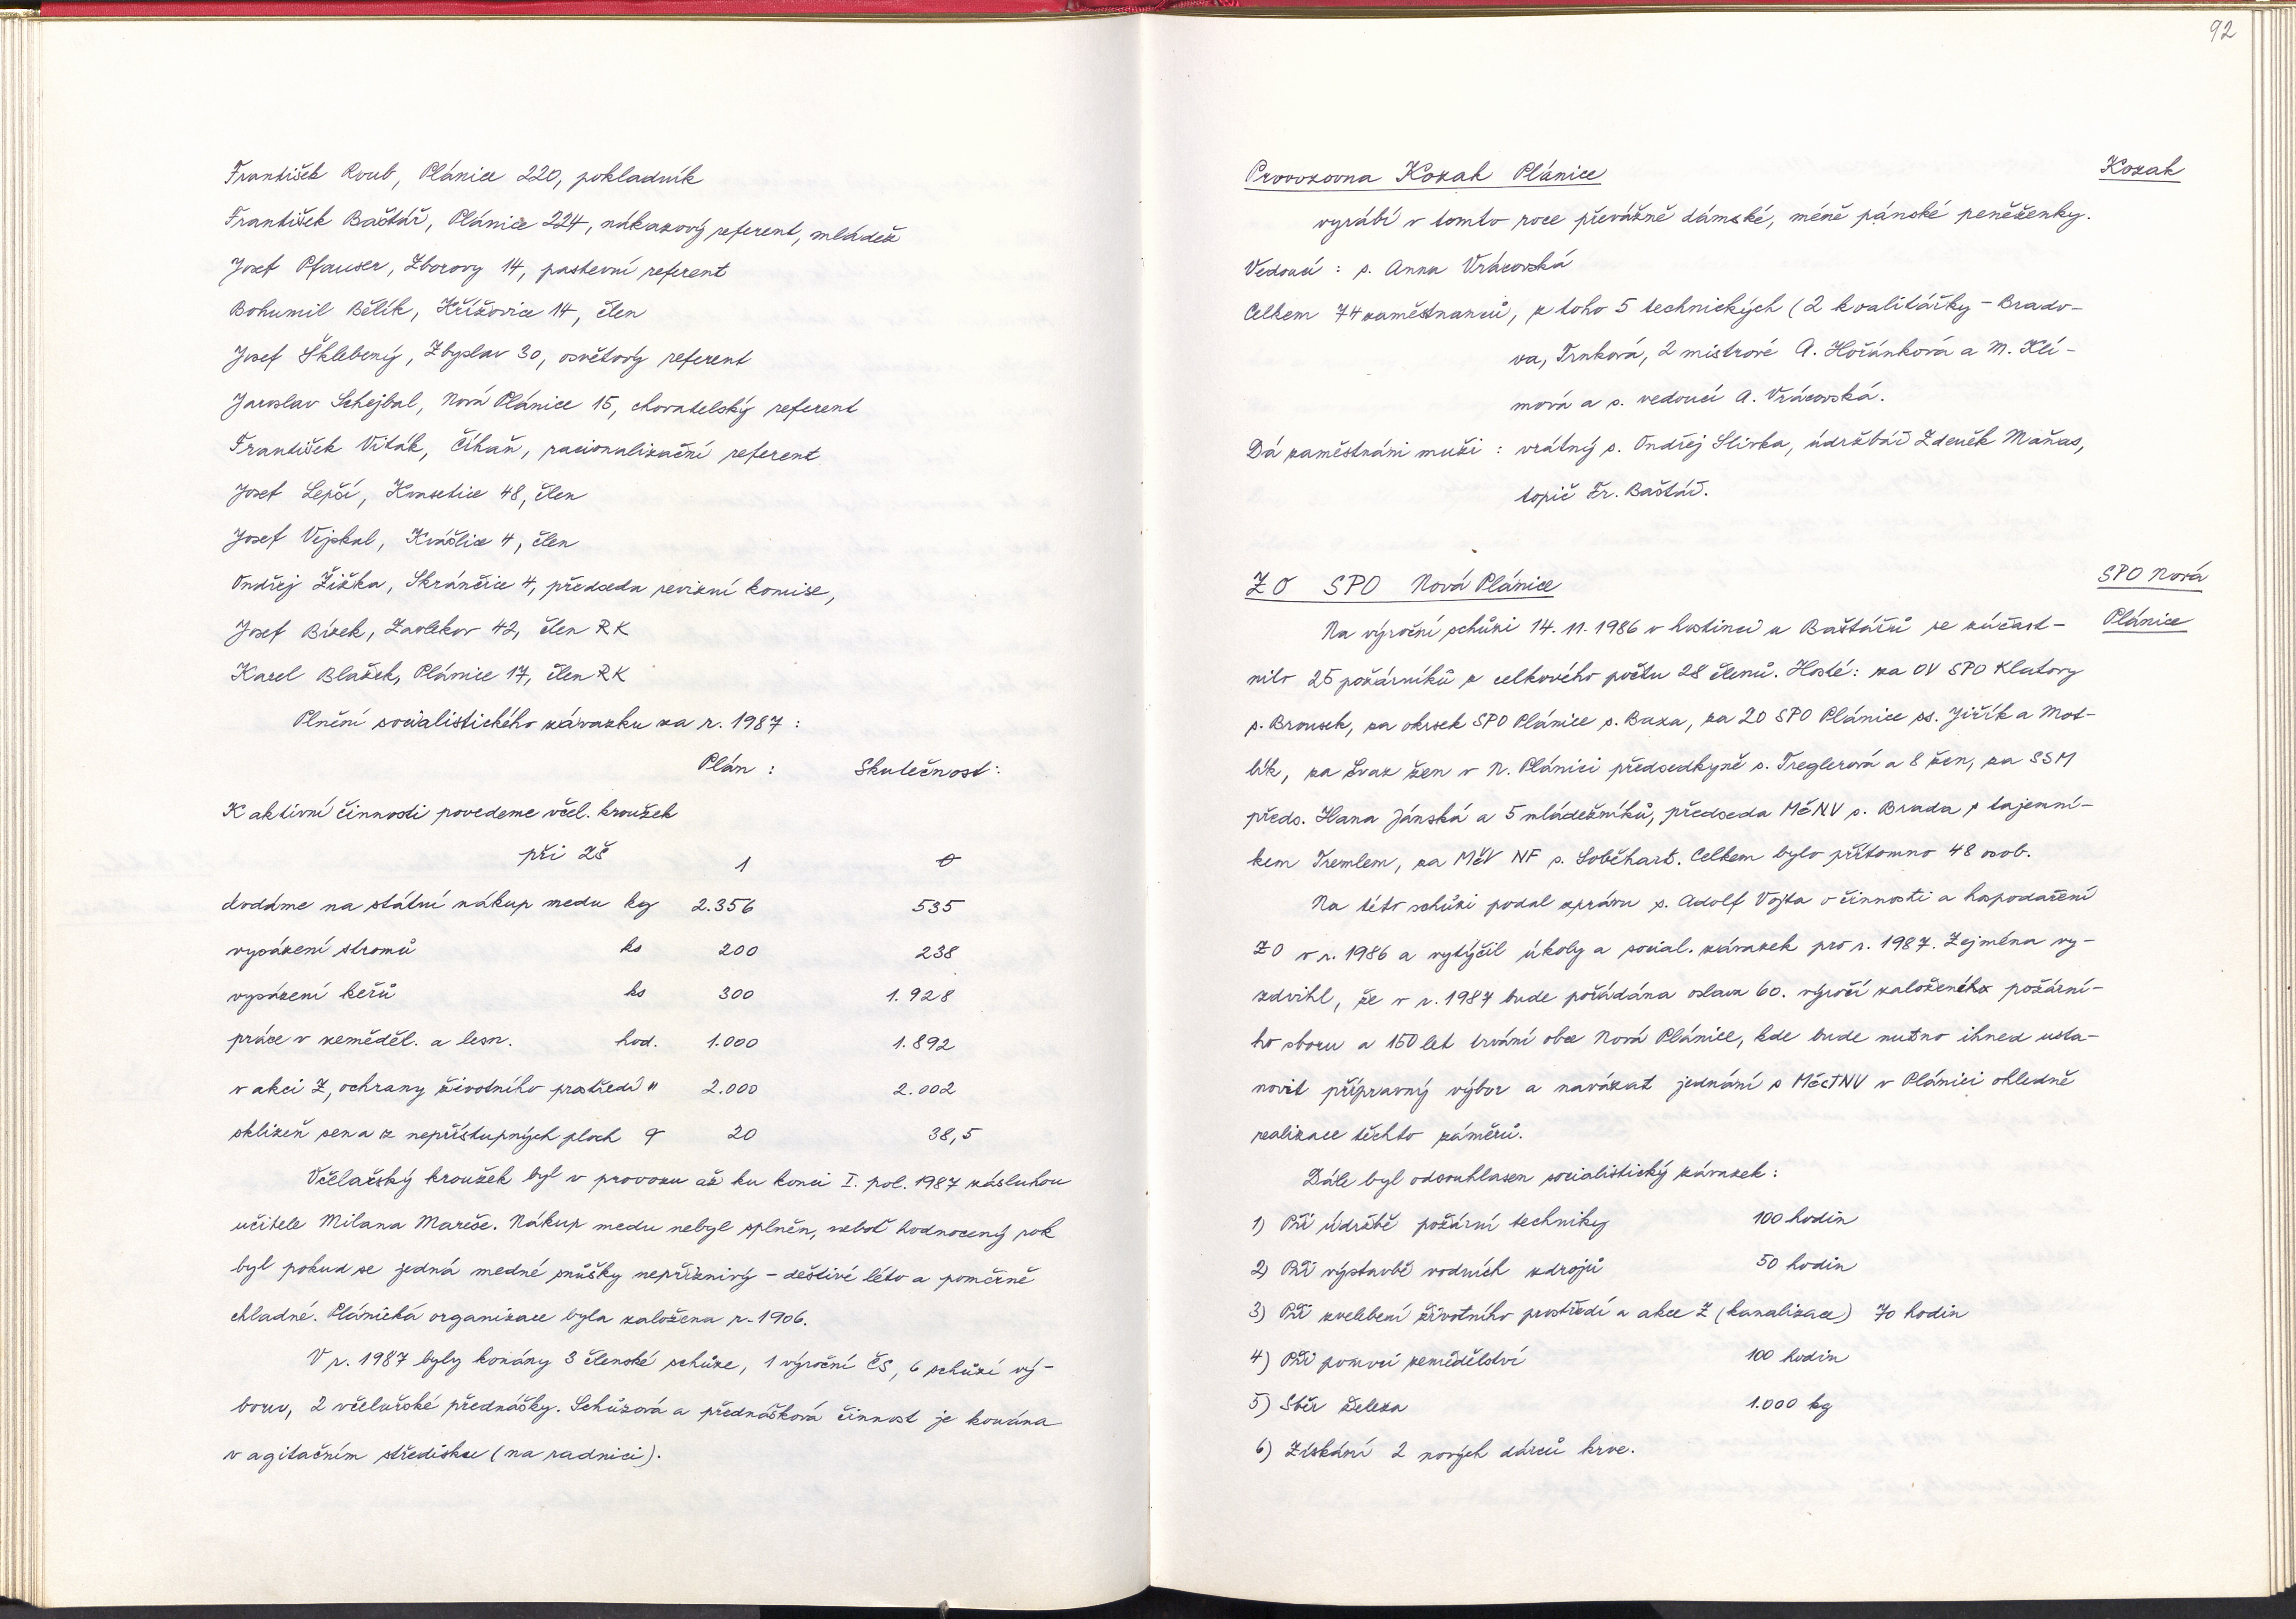 František Roub, Plánice 220, pokladník
František Baštář, Plánice 224, nákazový referent, mládež
Josef Pfauser, Zborovy 14, pastevní referent
Bohumil Bělík, Křížovice 14, člen
Josef Šklebený, Zbyslav 30, osvětový referent
Jaroslav Schejbal, Nová Plánice 15, chovatelský referent
František Viták, Číhaň, racionalizační referent
Josef Lepší, Kvasetice 48, člen
Josef Vejskal, Kvášlice 4, člen
Ondřej Žižka, Skránčice 4, předseda revizní komise,
Josef Bízek, Zavlekov 42, člen RK
Karel Blažek, Plánice 17, člen RK
Plnění socialistického závazku za r. 1987 :
Plán : Skutečnost :
K aktivní činnosti povedeme včel. kroužek
při ZŠ 1 0
dodáme na státní nákup medu kg 2.356 535
vysázení stromů ks 200 238
vysázení keřů ks 300 1.928
práce v zeměděl. a lesn. hod. 1.000 1.892
v akci Z, ochrany životního prostředí " 2.000 2.002
sklizeň sena z nepřístupných ploch q 20 38,5
Včelařský kroužek byl v provozu až ku konci I. pol. 1987 zásluhou
učitele Milana Mareše. Nákup medu nebyl splněn, neboť hodnocený rok
byl pokud se jedná medné snůšky nepříznivý – deštivé léto a poměrně
chladné. Plánická organizace byla založena r. 1906.
V r. 1987 byly konány 3 členské schůze, 1 výroční ČS, 6 schůzí vý-
boru, 2 včelařské přednášky. Schůzová a přednášková činnost je konána
v agitačním středisku (na radnici).
92
Provozovna Kozak Plánice
Kozak
vyrábí v tomto roce převážně dámské, méně pánské peněženky.
Vedoucí : s. Anna Vrácovská
Celkem 74 zaměstnanců, z toho 5 technických (2 kvalitářky – Brado-
va, Trnková, 2 mistrové A. Hořánková a M. Klí-
mová a s. vedoucí A. Vrácovská.
Dá zaměstnáni muži : vrátný s. Ondřej Slivka, údržbář Zdeněk Maňas,
topič Fr. Baštář.
ZO SPO Nová Plánice
SPO Nová
Plánice
Na výroční schůzi 14. 11. 1986 v hostinci u Baštářů se zúčast-
nilo 25 požárníků z celkového počtu 28 členů. Hosté : za OV SPO Klatovy
s. Brousek, za okrsek SPO Plánice s. Baxa, za ZO SPO Plánice ss. Jiřík a Mot-
lík, za Svaz žen v N. Plánici předsedkyně s. Treglerová a 8 žen, za SSM
předs. Hana Jánská a 5 mládežníků, předseda MěNV s. Brada s tajemní-
kem Tremlem, za MěV NF s. Soběhart. Celkem bylo přítomno 48 osob.
Na této schůzi podal zprávu s. Adolf Vojta o činnosti a hospodaření
ZO v r. 1986 a vytýčil úkoly a social. závazek pro r. 1987. Zejména vy-
zdvihl, že v r. 1987 bude pořádána oslava 60. výročí založeného požární-
ho sboru a 150 let trvání obce Nová Plánice, kde bude nutno ihned usta-
novit přípravný výbor a navázat jednání s MěstNV v Plánici ohledně
realizace těchto záměrů.
Dále byl odsouhlasen socialistický závazek :
1) Při údržbě požární techniky 100 hodin
2) Při výstavbě vodních zdrojů 50 hodin
3) Při zvelebení životního prostředí a akce Z (kanalizace) 70 hodin
4) Při pomoci zemědělství 100 hodin
5) Sběr železa 1.000 kg
6) Získání 2 nových dárců krve.